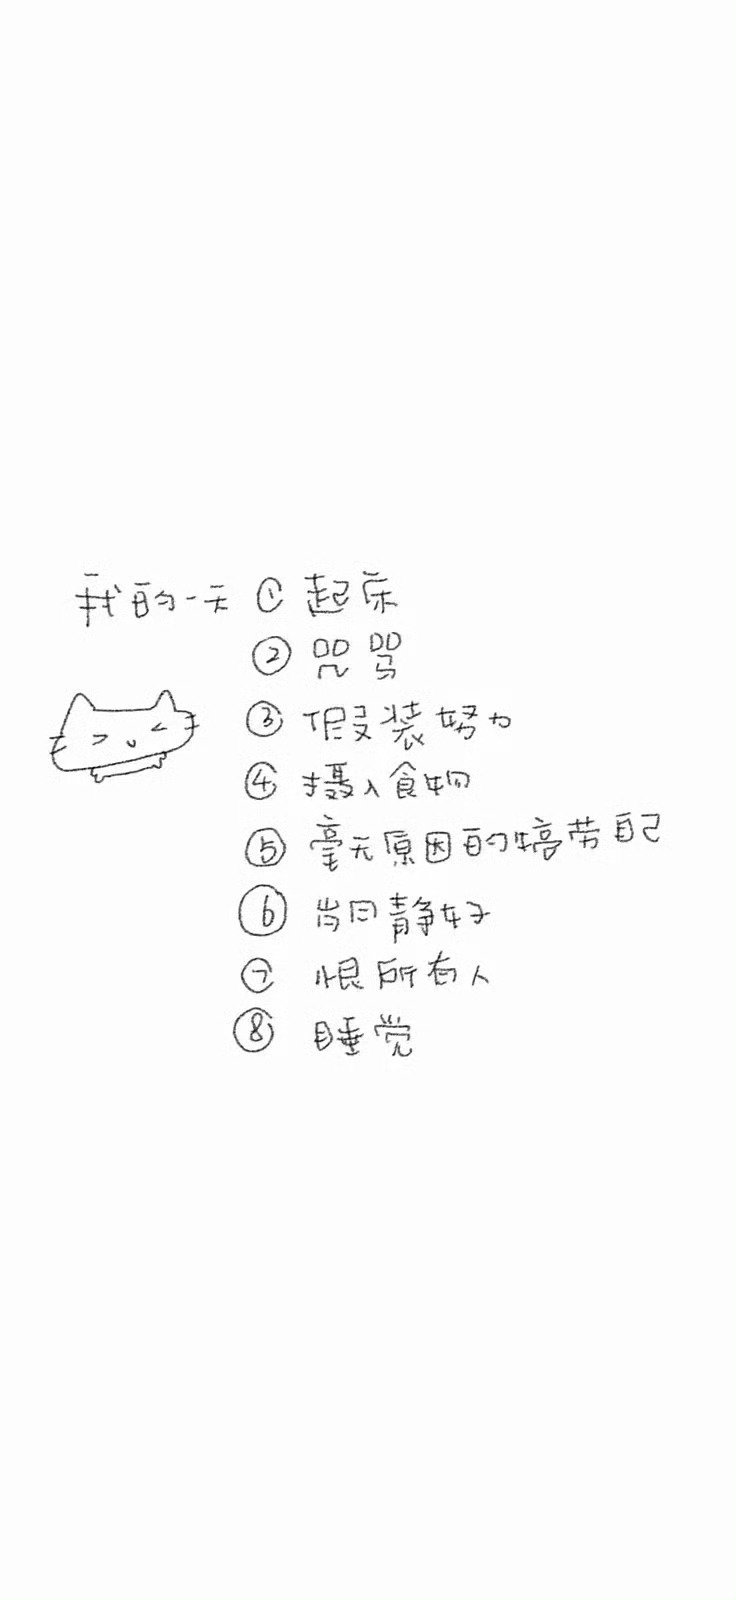 我的一天 ① 起床
② 咒骂
③ 假装努力
④ 摄入食物
⑤ 毫无原因的犒劳自己
⑥ 岁月静好
⑦ 恨所有人
⑧ 睡觉